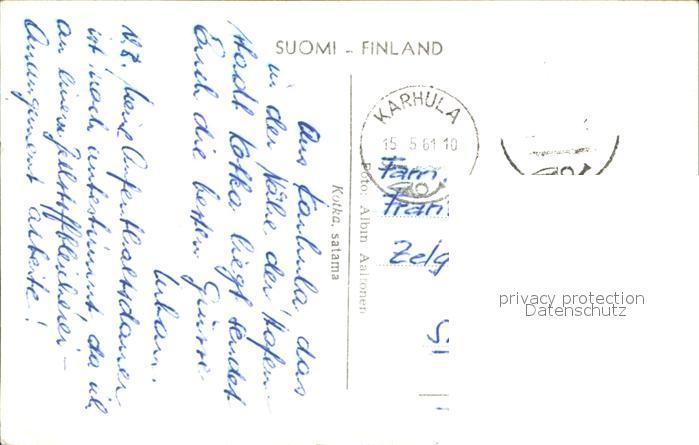 SUOMI – FINLAND
Aus Karhula, das
in der Nähe der Hafen-
stadt Kotka liegt sendet
Euch die besten Grüsse
Urban.
N.B. Meine Aufenthaltsdauer
ist noch unbestimmt, da ich
an einem Zellstoffbleicherei-
Arrangement arbeite!
Kotka, satama
Foto: Albin Aaltonen
KARHULA
15. 5 61 10
Fam.
Fran
Zelg
privacy protection
Datenschutz